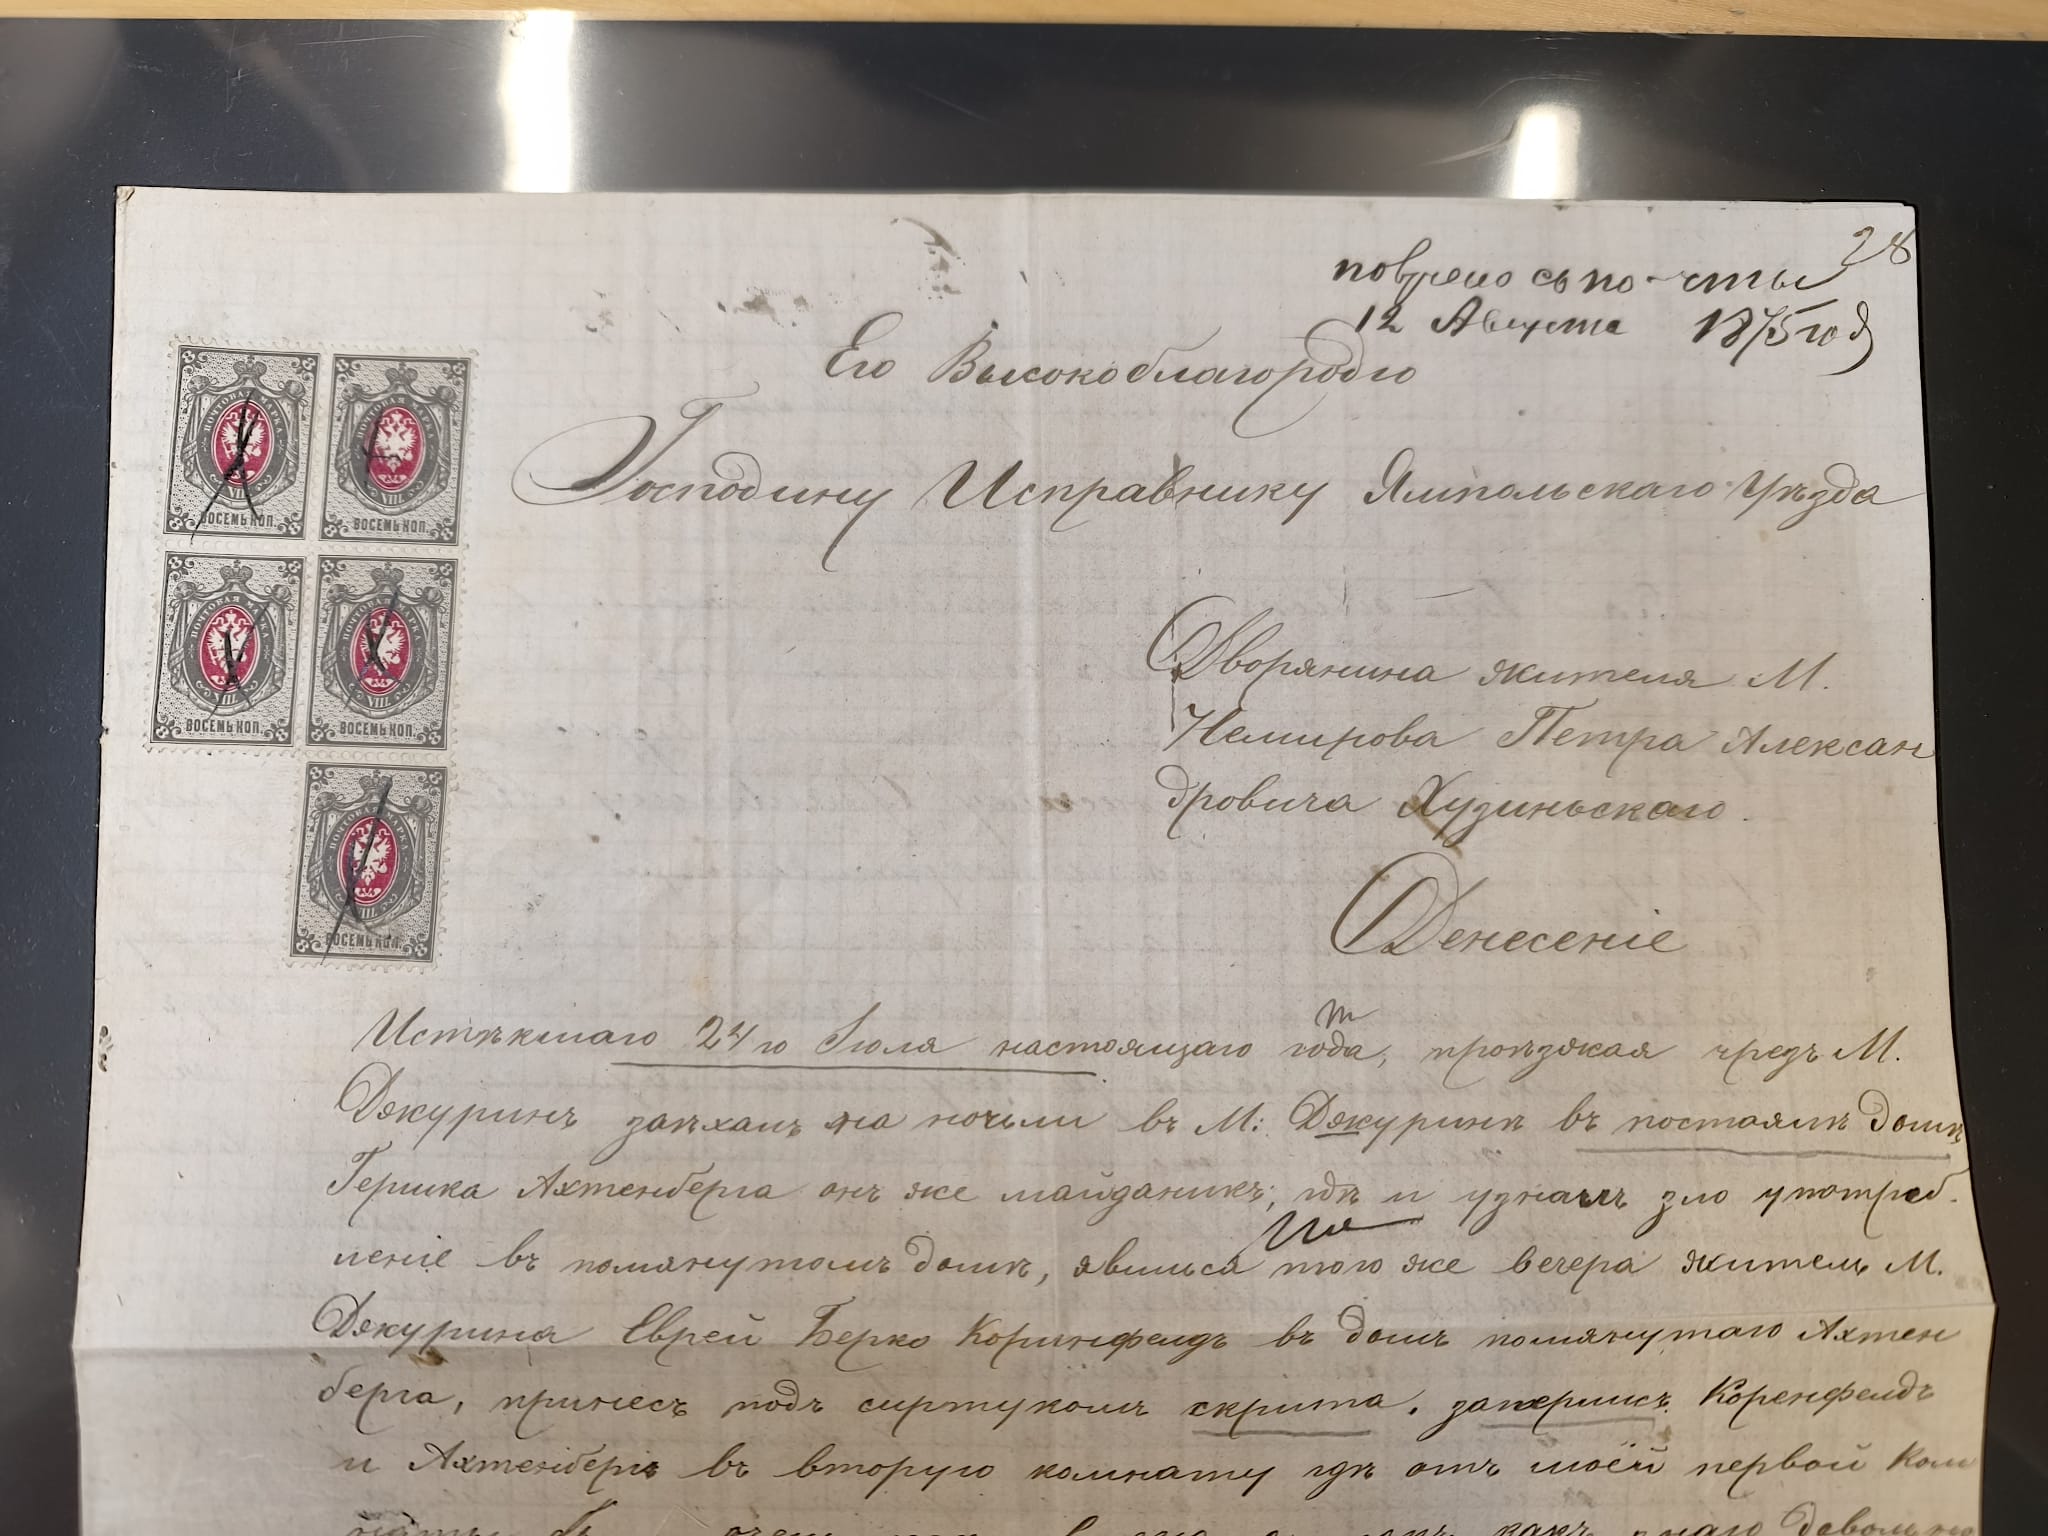 28
получено съ почты
12 Августа 1875 год
Его Высокоблагородію
Господину Исправнику Ямпольскаго Уѣзда
ПОЧТОВАЯ МАРКА
VIII
ВОСЕМЬ КОП.
ПОЧТОВАЯ МАРКА
VIII
ВОСЕМЬ КОП.
ПОЧТОВАЯ МАРКА
VIII
ВОСЕМЬ КОП.
ПОЧТОВАЯ МАРКА
VIII
ВОСЕМЬ КОП.
ПОЧТОВАЯ МАРКА
VIII
ВОСЕМЬ КОП.
Дворянина жителя М.
Немирова Петра Алексан
дровича Худиньскаго.
Денесеніе
Истѣкшаго 24го Іюля настоящаго года, проѣзжая чрезъ М.
Джуринъ заѣхалъ на ночьли въ М: Джуринѣ въ постоялѣ домѣ
Гершка Ахтенберга онъ же майданикъ, гдѣ и узналъ зло употреб-
леніе въ помянутомъ домѣ, явилься того же вечера житель М.
Джурина Еврей Берко Коринфелдъ въ домъ помянутаго Ахтен
берга, принесъ подъ сиртукомъ скрита, заперлись Коренфелдъ
и Ахтенбергъ въ вторую комнату гдѣ отъ моёй первой ком
какъ